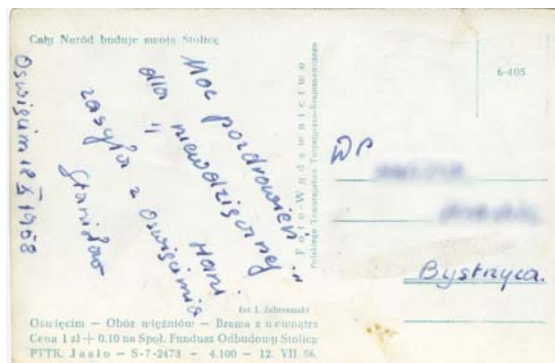 Cały Naród buduje swoją Stolicę
Oświęcim 12 X 1958
Moc pozdrowień
dla "niewdzięcznej"
Hani
zasyła z Oświęcimia
Stanisław
Foto-Wydawnictwo
Polskiego Towarzystwa Turystyczno-Krajoznawczego
6-405
WP
Bystrzyca.
fot. I. Jabrzemski
Oświęcim — Obóz więźniów — Brama z wewnątrz
Cena 1 zł + 0.10 na Społ. Fundusz Odbudowy Stolicy
PTTK. Jasło — S-7-2473 — 4.100 — 12. VII 56.